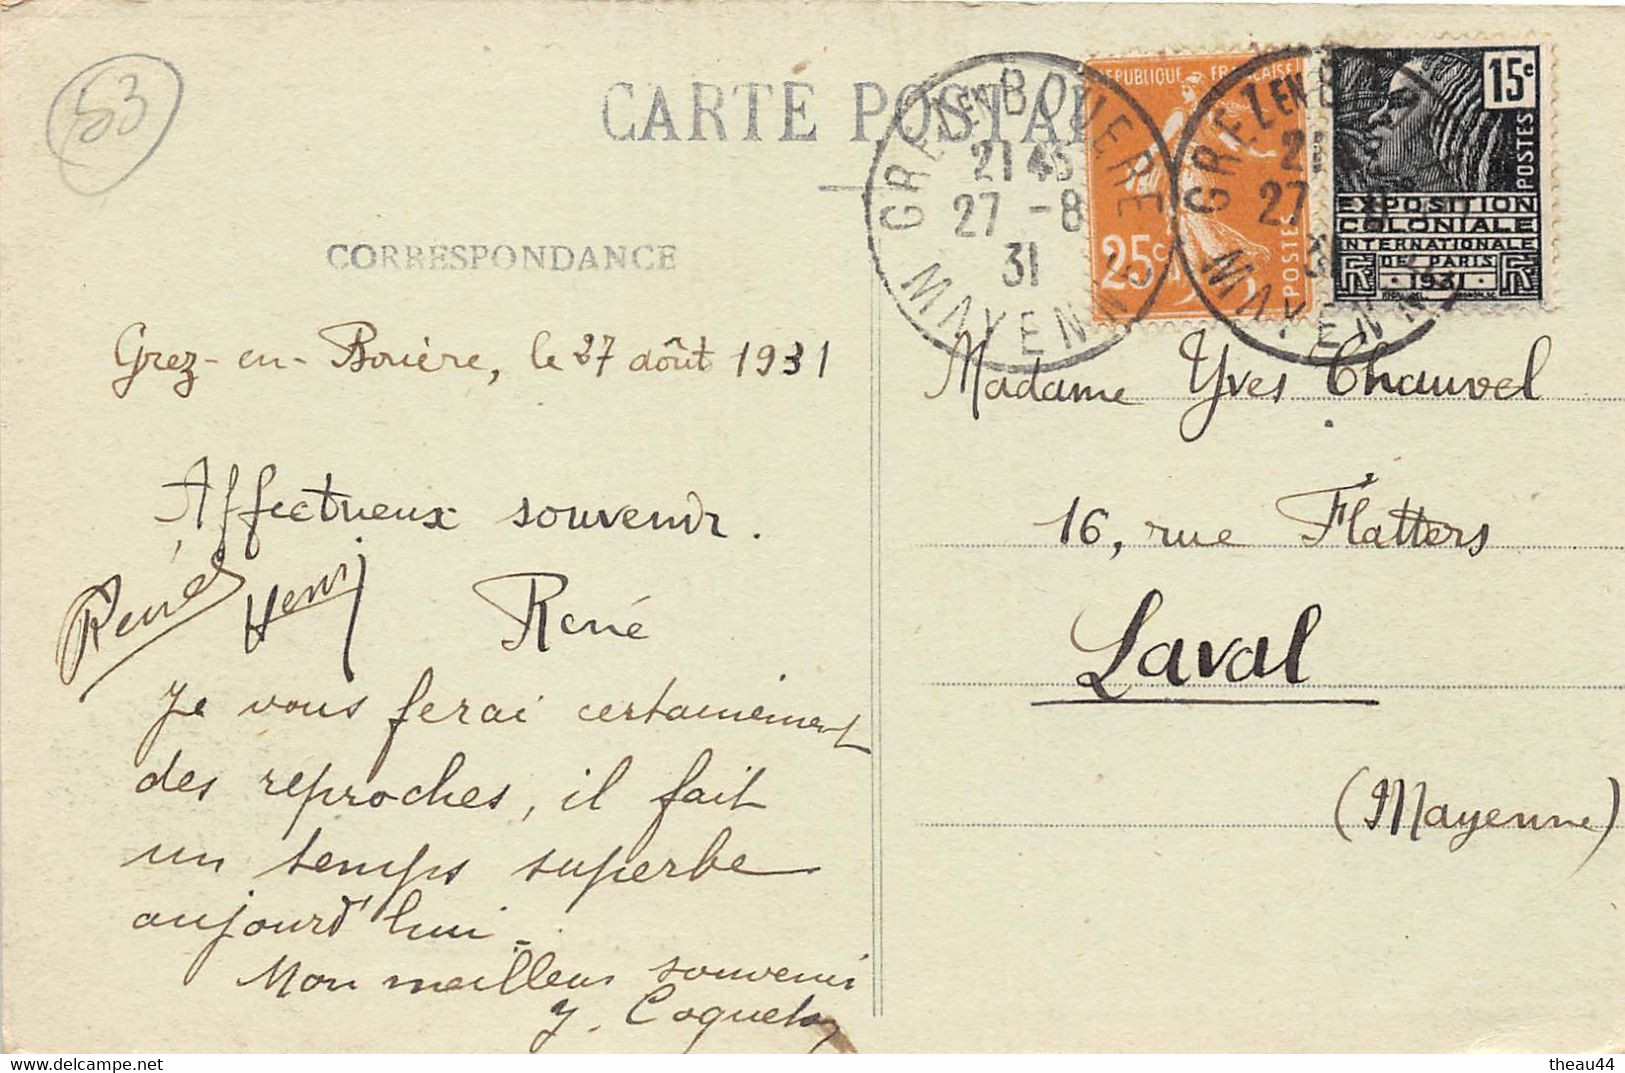 53
CARTE POSTA
CORRESPONDANCE
GREZ EN BOUERE
21 45
27 -8
31
MAYENNE
REPUBLIQUE FRANÇAISE
25c
POSTES
GREZ EN B
21
27 8
31
MAYENN
15c
POSTES
EXPOSITION
COLONIALE
INTERNATIONALE
DE PARIS
RF 1931 RF
Grez-en-Bouère, le 27 août 1931
Affectueux souvenir.
Renée Henri René
Je vous ferai certainement
des reproches, il fait
un temps superbe
aujourd'hui.
Mon meilleur souvenir
Y.
Madame Yves Chauvel
16, rue Flatters
Laval
(Mayenne)
delcampe.net
theau44